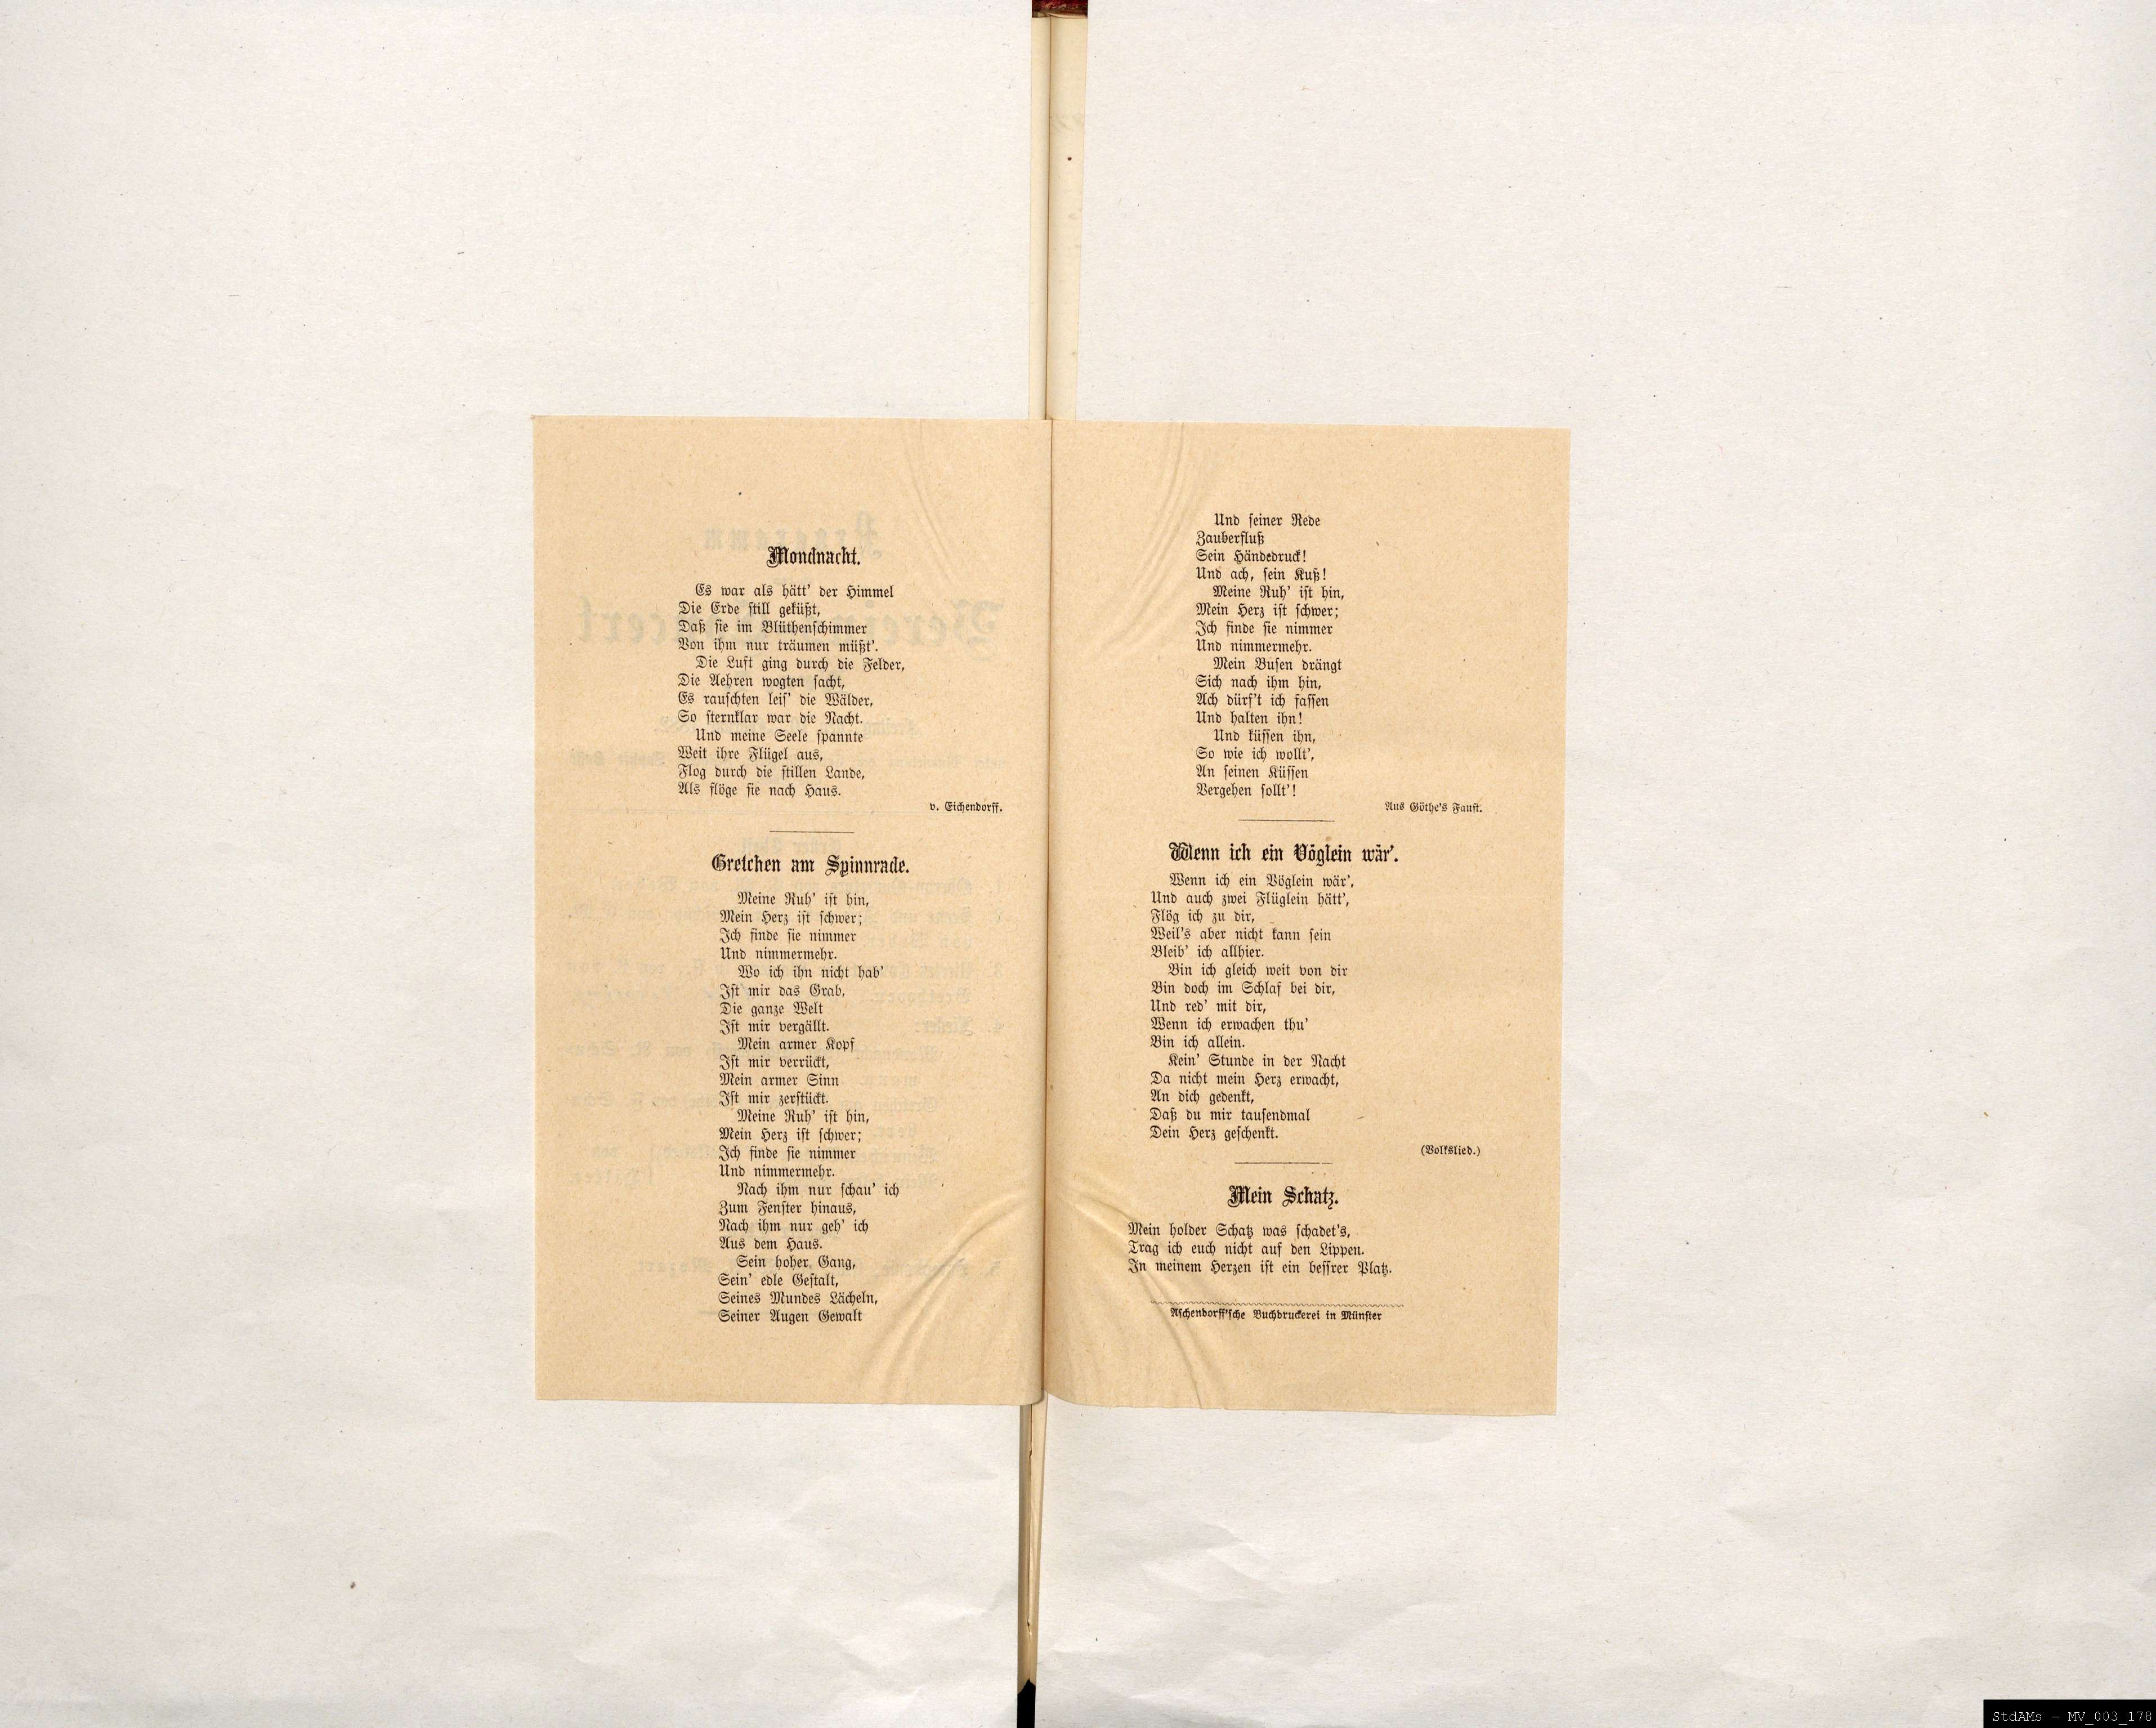 Mondnacht.
Es war als hätt' der Himmel
Die Erde still geküßt,
Daß sie im Blüthenschimmer
Von ihm nur träumen müßt'.
Die Luft ging durch die Felder,
Die Aehren wogten sacht,
Es rauschten leis' die Wälder,
So sternklar war die Nacht.
Und meine Seele spannte
Weit ihre Flügel aus,
Flog durch die stillen Lande,
Als flöge sie nach Haus.
v. Eichendorff.
Gretchen am Spinnrade.
Meine Ruh' ist hin,
Mein Herz ist schwer;
Ich finde sie nimmer
Und nimmermehr.
Wo ich ihn nicht hab'
Ist mir das Grab,
Die ganze Welt
Ist mir vergällt.
Mein armer Kopf
Ist mir verrückt,
Mein armer Sinn
Ist mir zerstückt.
Meine Ruh' ist hin,
Mein Herz ist schwer;
Ich finde sie nimmer
Und nimmermehr.
Nach ihm nur schau' ich
Zum Fenster hinaus,
Nach ihm nur geh' ich
Aus dem Haus.
Sein hoher Gang,
Sein' edle Gestalt,
Seines Mundes Lächeln,
Seiner Augen Gewalt
Und seiner Rede
Zauberfluß
Sein Händedruck!
Und ach, sein Kuß!
Meine Ruh' ist hin,
Mein Herz ist schwer;
Ich finde sie nimmer
Und nimmermehr.
Mein Busen drängt
Sich nach ihm hin,
Ach dürf't ich fassen
Und halten ihn!
Und küssen ihn,
So wie ich wollt',
An seinen Küssen
Vergehen sollt'!
Aus Göthe's Faust.
Wenn ich ein Vöglein wär'.
Wenn ich ein Vöglein wär',
Und auch zwei Flüglein hätt',
Flög ich zu dir,
Weil's aber nicht kann sein
Bleib' ich allhier.
Bin ich gleich weit von dir
Bin doch im Schlaf bei dir,
Und red' mit dir,
Wenn ich erwachen thu'
Bin ich allein.
Kein' Stunde in der Nacht
Da nicht mein Herz erwacht,
An dich gedenkt,
Daß du mir tausendmal
Dein Herz geschenkt.
(Volkslied.)
Mein Schatz.
Mein holder Schatz was schadet's,
Trag ich euch nicht auf den Lippen.
In meinem Herzen ist ein bessrer Platz.
Aschendorff'sche Buchdruckerei in Münster
StdAMs - MV_003_178